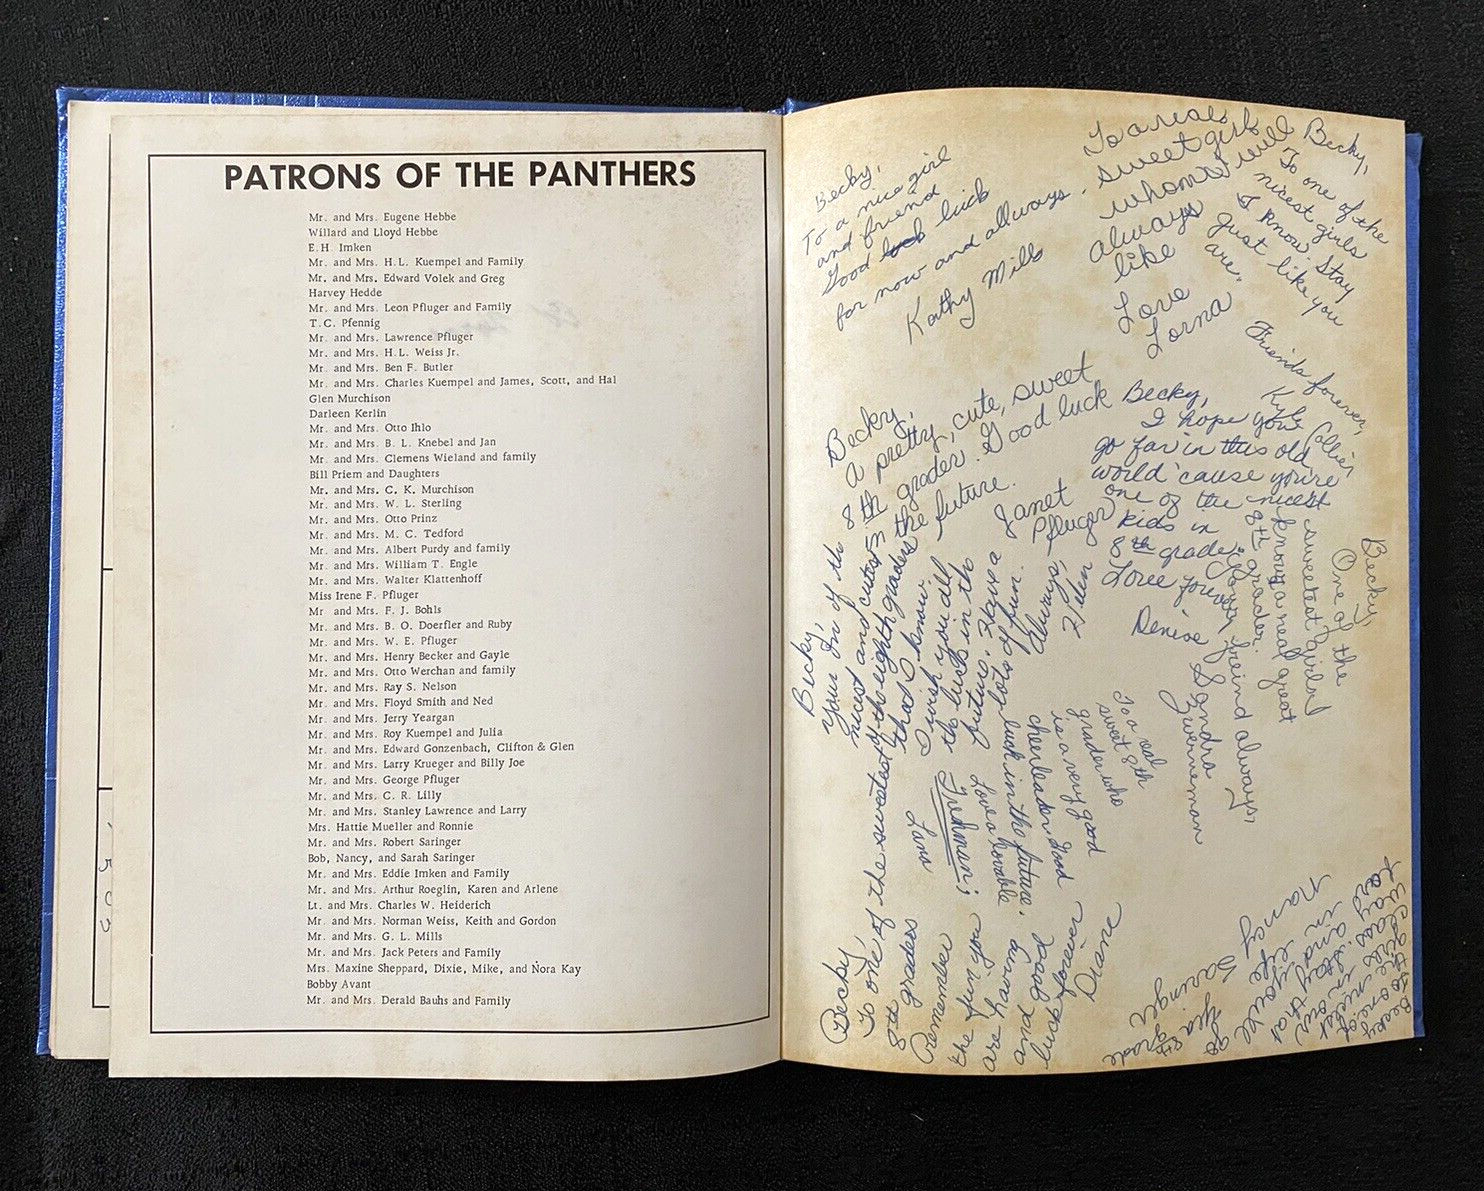 PATRONS OF THE PANTHERS
Mr. and Mrs. Eugene Hebbe
Willard and Lloyd Hebbe
E.H. Imken
Mr. and Mrs. H.L. Kuempel and Family
Mr. and Mrs. Edward Volek and Greg
Harvey Hedde
Mr. and Mrs. Leon Pfluger and Family
T.C. Pfennig
Mr. and Mrs. Lawrence Pfluger
Mr. and Mrs. H.L. Weiss Jr.
Mr. and Mrs. Ben F. Butler
Mr. and Mrs. Charles Kuempel and James, Scott, and Hal
Glen Murchison
Darleen Kerlin
Mr. and Mrs. Otto Ihlo
Mr. and Mrs. B. L. Knebel and Jan
Mr. and Mrs. Clemens Wieland and family
Bill Priem and Daughters
Mr. and Mrs. C. K. Murchison
Mr. and Mrs. W. L. Sterling
Mr. and Mrs. Otto Prinz
Mr. and Mrs. M. C. Tedford
Mr. and Mrs. Albert Purdy and family
Mr. and Mrs. William T. Engle
Mr. and Mrs. Walter Klattenhoff
Miss Irene F. Pfluger
Mr and Mrs. F. J. Bohls
Mr. and Mrs. B. O. Doerfler and Ruby
Mr. and Mrs. W. E. Pfluger
Mr. and Mrs. Henry Becker and Gayle
Mr. and Mrs. Otto Werchan and family
Mr. and Mrs. Ray S. Nelson
Mr. and Mrs. Floyd Smith and Ned
Mr. and Mrs. Jerry Yeargan
Mr. and Mrs. Roy Kuempel and Julia
Mr. and Mrs. Edward Gonzenbach, Clifton & Glen
Mr. and Mrs. Larry Krueger and Billy Joe
Mr. and Mrs. George Pfluger
Mr. and Mrs. C. R. Lilly
Mr. and Mrs. Stanley Lawrence and Larry
Mrs. Hattie Mueller and Ronnie
Mr. and Mrs. Robert Saringer
Bob, Nancy, and Sarah Saringer
Mr. and Mrs. Eddie Imken and Family
Mr. and Mrs. Arthur Roeglin, Karen and Arlene
Lt. and Mrs. Charles W. Heiderich
Mr. and Mrs. Norman Weiss, Keith and Gordon
Mr. and Mrs. G. L. Mills
Mr. and Mrs. Jack Peters and Family
Mrs. Maxine Sheppard, Dixie, Mike, and Nora Kay
Bobby Avant
Mr. and Mrs. Derald Bauhs and Family
Becky,
To a nice girl
and friend
Good luck
for now and allways.
Kathy Mills
To a real
sweet girl
whom I will
always
like
Love
Lorna
Becky,
To one of the
nicest girls
I know. Stay
just like you
are.
Friends forever,
Kyle Collier
Becky,
A pretty, cute, sweet
8th grader. Good luck
in the future.
Janet
Pfluger
Becky,
I hope you
go far in this old
world 'cause you're
one of the nicest
kids in
8th grade.
Love forever,
Denise
Becky,
Your one of the
nicest and cutest
of the eighth graders
that I know.
I wish you all
the luck in the
future. Have a
lots of fun.
Always,
Helen
Becky,
One of the
sweetest girls I
know & a neat, great
8th grader.
Your freind always,
Sandra
Zwerneman
Becky,
To one of the sweetest
8th graders
Remember
the fun you
are having
in
Freshman;
Love
To a real
sweet 8th
grader who
is a very good
cheerleader. Good
luck in the future.
good
luck forever
Diane
Becky
to one of
the nicest
girls in our
class. Stay that
way and
in life
Nancy Saringer
8th grade